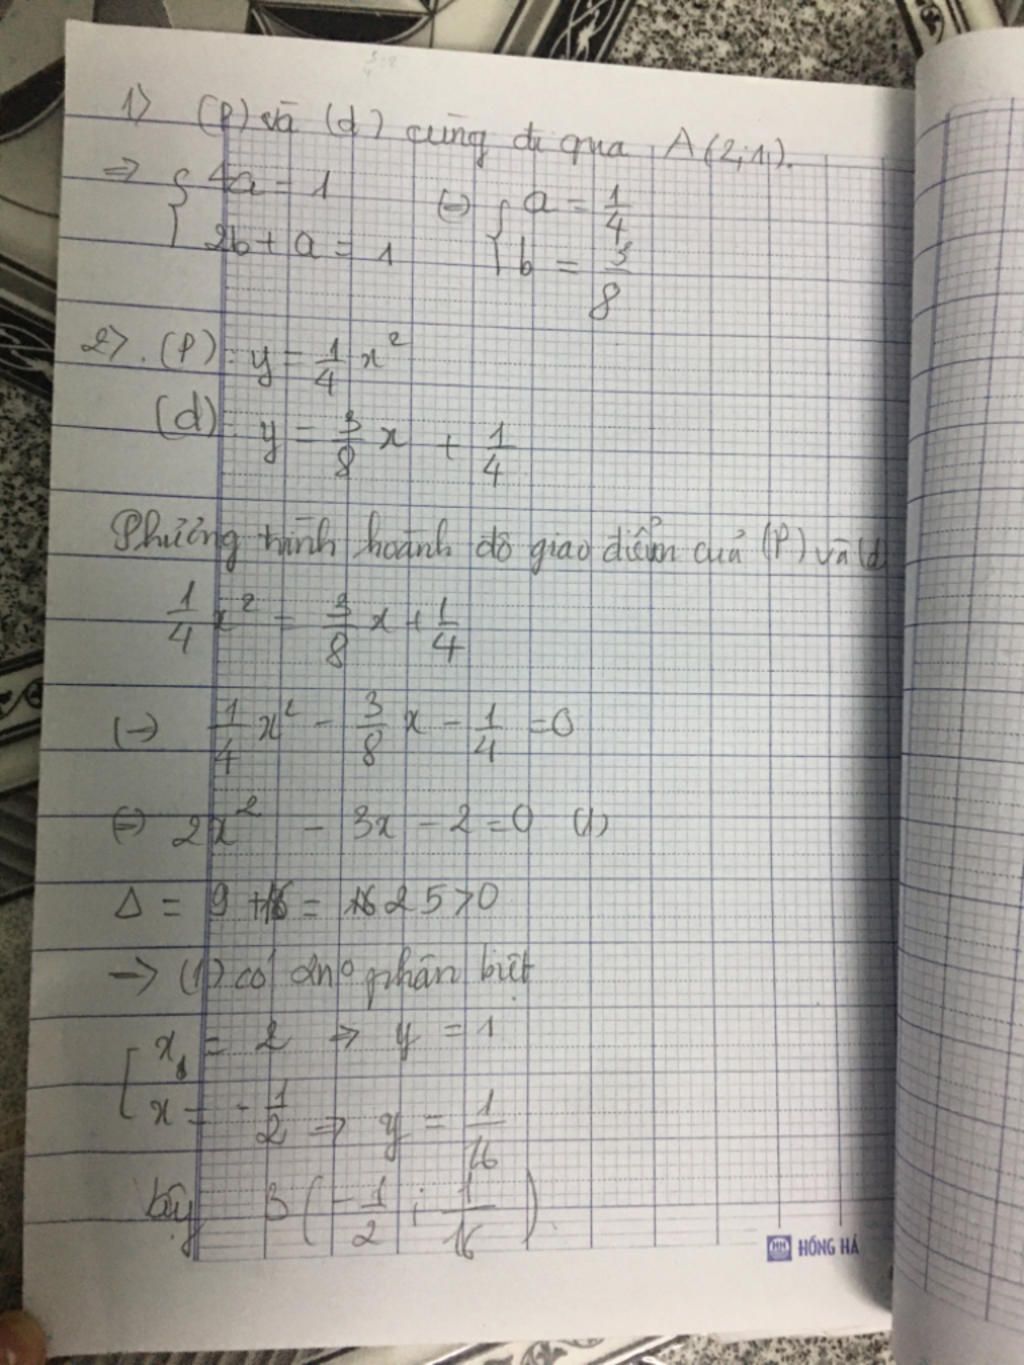 1) (P) và (d) cùng đi qua A(2;1).
=> { 4a = 1 (=) { a = 1/4
2b + a = 1 b = 3/8
2). (P): y = 1/4 x²
(d): y = 3/8 x + 1/4
Phương trình hoành độ giao điểm của (P) và (d)
1/4 x² = 3/8 x + 1/4
(=) 1/4 x² - 3/8 x - 1/4 = 0
(=) 2x² - 3x - 2 = 0 (1)
Δ = 9 + 16 = 25 > 0
-> (1) có 2n⁰ phân biệt
[ x₁ = 2 => y = 1
x = -1/2 => y = 1/16
Vậy B(-1/2; 1/16)
HH HỒNG HÀ